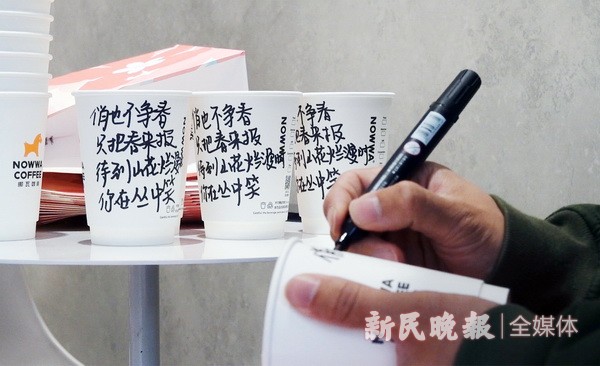 NOWWA
COFFEE
挪瓦咖啡
俏也不争春
只把春来报
待到山花烂漫
你在丛中笑
俏也不争春
只把春来报
待到山花烂漫时
你在丛中笑
NOWWA
争春
把春来报
山花烂漫时
在丛中笑
NOWWA
新民晚报|全媒体